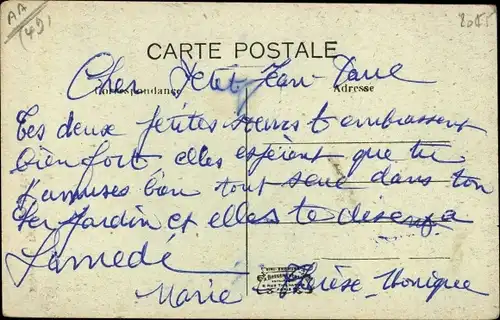 AA
(49)
CARTE POSTALE
Cher Petit Jean-
Correspondance
Adresse
Tes deux petites sœurs t'embrassent
bien fort elles espèrent que tu
t'amuses bien tout seul dans ton
jardin et elles te disent a
Samedi
Marie Thérèse Monique